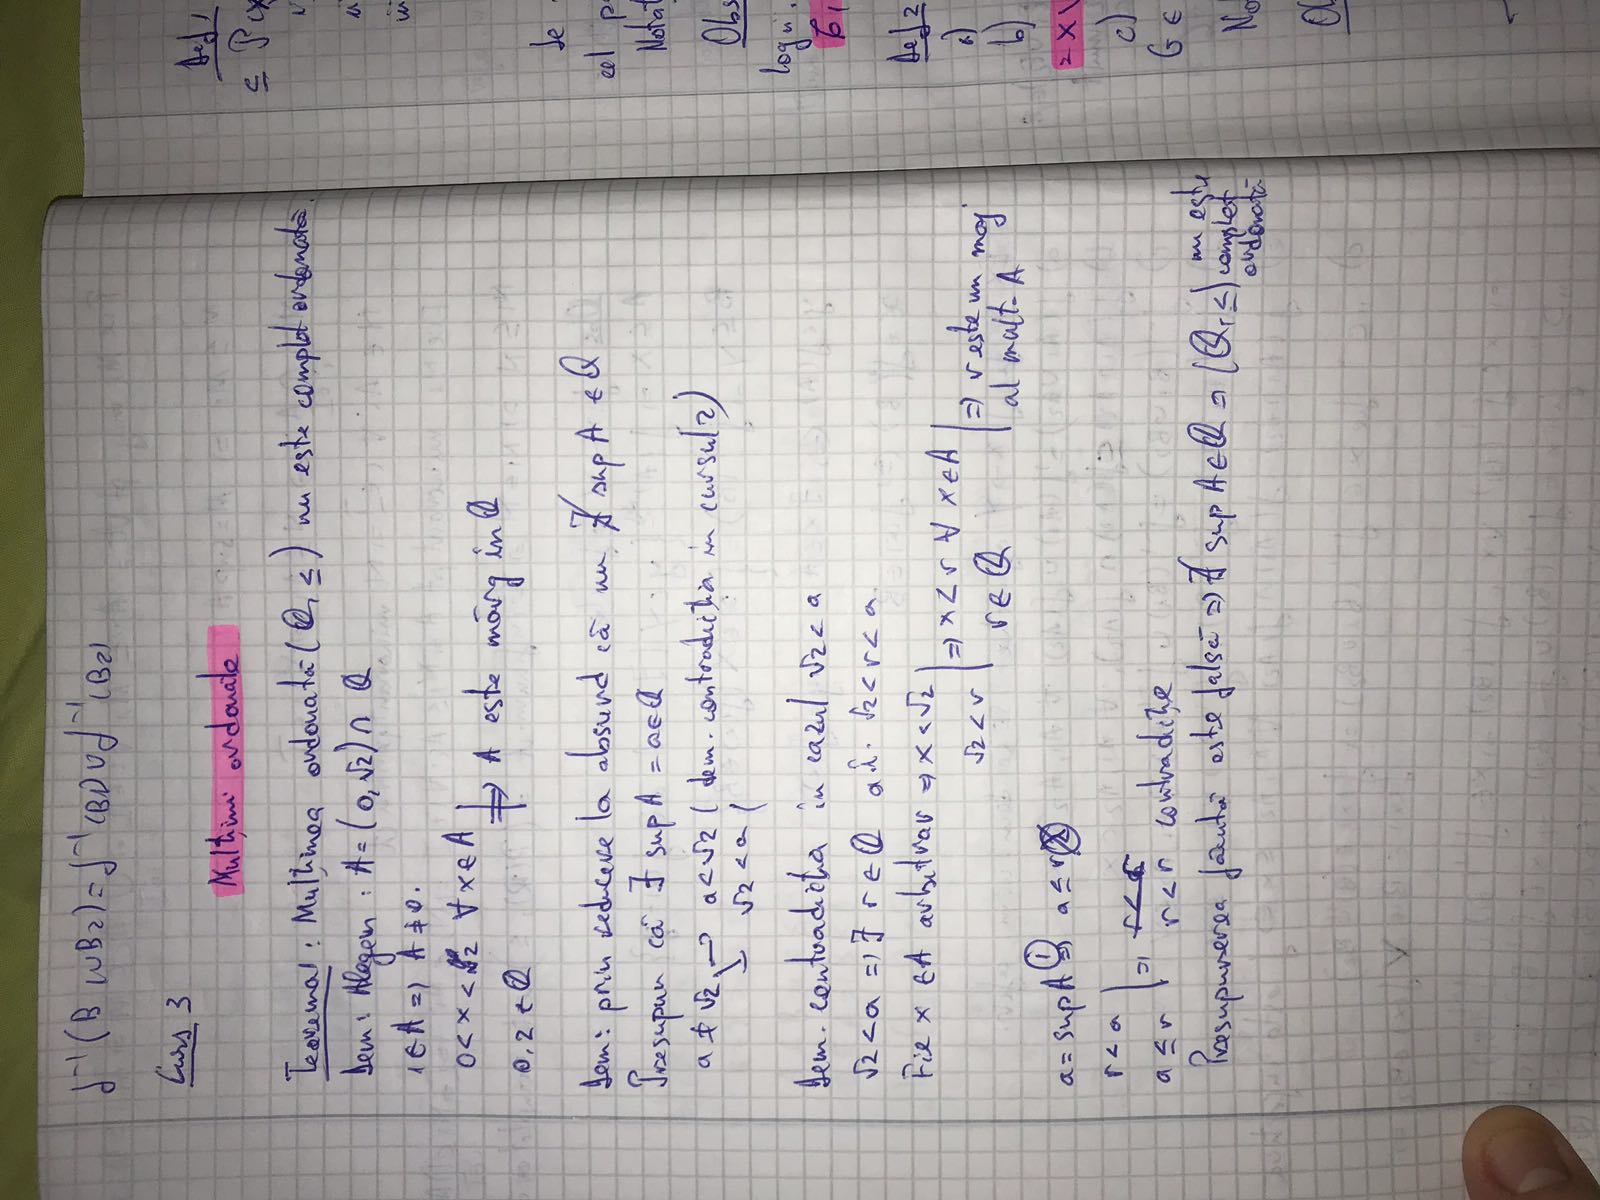 f⁻¹(B₁∪B₂)=f⁻¹(B₁)∪f⁻¹(B₂)
Curs 3
Mulțimi ordonate
Teorema 1: Mulțimea ordonată (ℚ, ≤) nu este complet ordonată.
Dem: Alegem: A=(0,√2)∩ℚ
1∈A ⇒ A≠∅.
0<x<√2 ∀x∈A
0,2∈ℚ
⇒ A este mărg in ℚ
Dem: prin reducere la absurd că nu ∄ sup A∈ℚ
Presupun că ∃ sup A = a∈ℚ
a≠√2 a<√2 (dem. contradicția in cursul 2)
√2<a (
Dem. contradicția in cazul √2<a
√2<a ⇒ ∃ r∈ℚ a.î. √2<r<a
Fie x∈A arbitrar ⇒ x<√2 | ⇒ x<r ∀x∈A | ⇒ r este un maj
√2<r | r∈ℚ | al mult. A
a=sup A ①⇒ a≤r
r<a
a≤r | ⇒ r<r contradicție
Presupunerea făcută este falsă ⇒ ∄ sup A∈ℚ ⇒ (ℚ,≤) nu este
complet
ordonată
Def 1
⊆ P(X
Se
cel p
Notat
Obs
Def 2
a)
b)
= X \
c)
G∈
Not
Ob